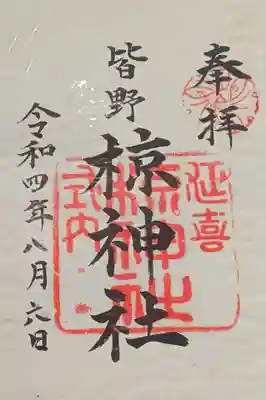 奉拝
延喜
皆野
椋神社
式内
令和四年八月六日